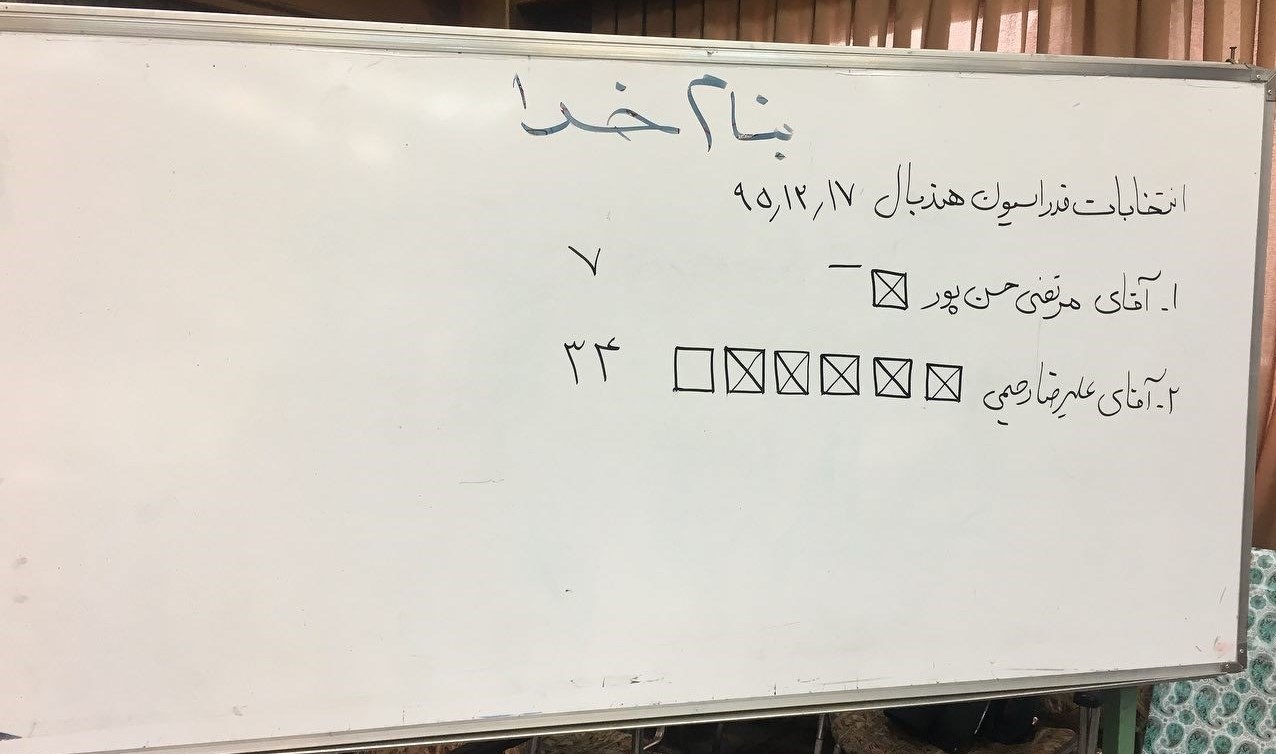 بنام خدا
انتخابات فدراسیون هندبال ۹۵٫۱۲٫۱۷
۱- آقای مرتضی حسن پور ۷
۲- آقای علیرضا رحیمی ۳۴